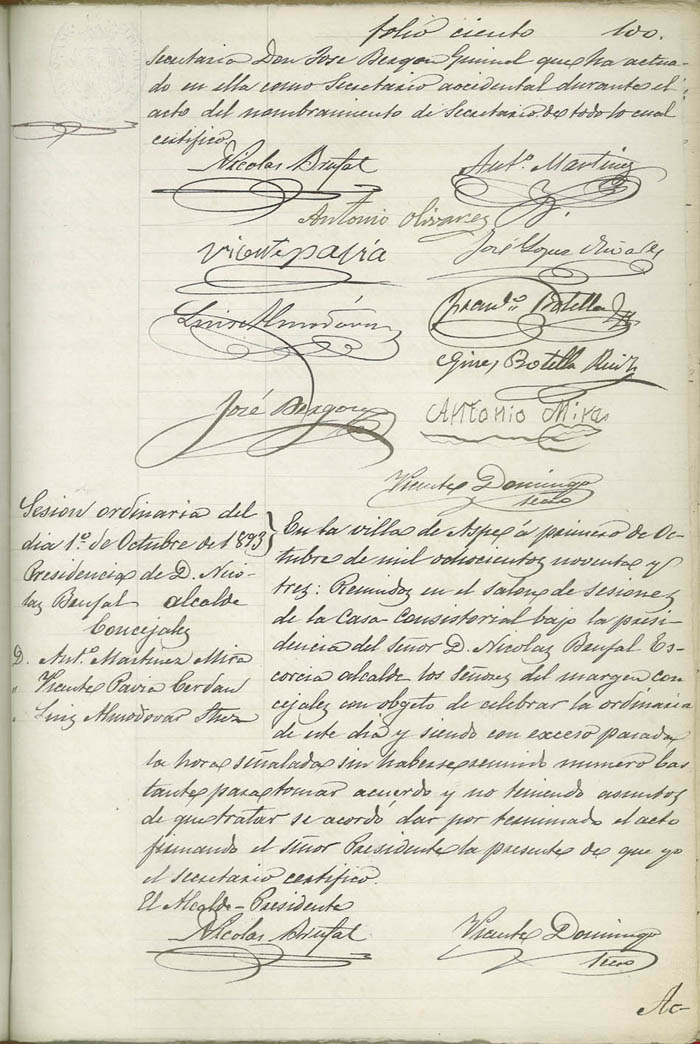 folio ciento 100.
Secretario Don José Bergon Guinul que ha actua-
do en ella como Secretario accidental durante el
acto del nombramiento de Secretario, de todo lo cual
certifico
Nicolas Brufal
Antº. Martinez
Antonio Olivares
Vicente pavía
José Gomez
Luis Almodóvar
Franº. Botella
Gines Botella Ruiz
José Bergon
Antonio Miras
Vicente Domingo
Secro
Sesion ordinaria del
dia 1º. de Octubre de 1893
Presidencia de D. Nico-
las Brufal alcalde
Concejales
D. Antº. Martinez Mira
" Vicente Pavia Cerdan
" Luis Almodovar
En la villa de Aspe á primero de Oc-
tubre de mil ochocientos noventa y
tres: Reunidos en el salon de sesiones
de la Casa Consistorial bajo la presi-
dencia del señor D. Nicolas Brufal Es-
corcia alcalde los señores del margen con-
cejales con objeto de celebrar la ordinaria
de este dia y siendo con exceso pasada
la hora señalada sin haberse reunido numero bas
tante para tomar acuerdo y no teniendo asuntos
de que tratar se acordó dar por terminado el acto
firmando el señor Presidente la presente de que yo
el secretario certifico.
El Alcalde-Presidente
Nicolas Brufal
Vicente Domingo
Secro
Ac-